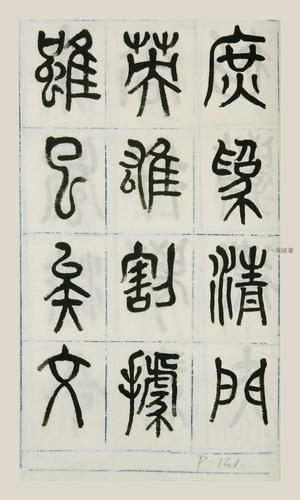 庶為清門
英雄割據
雖已矣文
P-161.